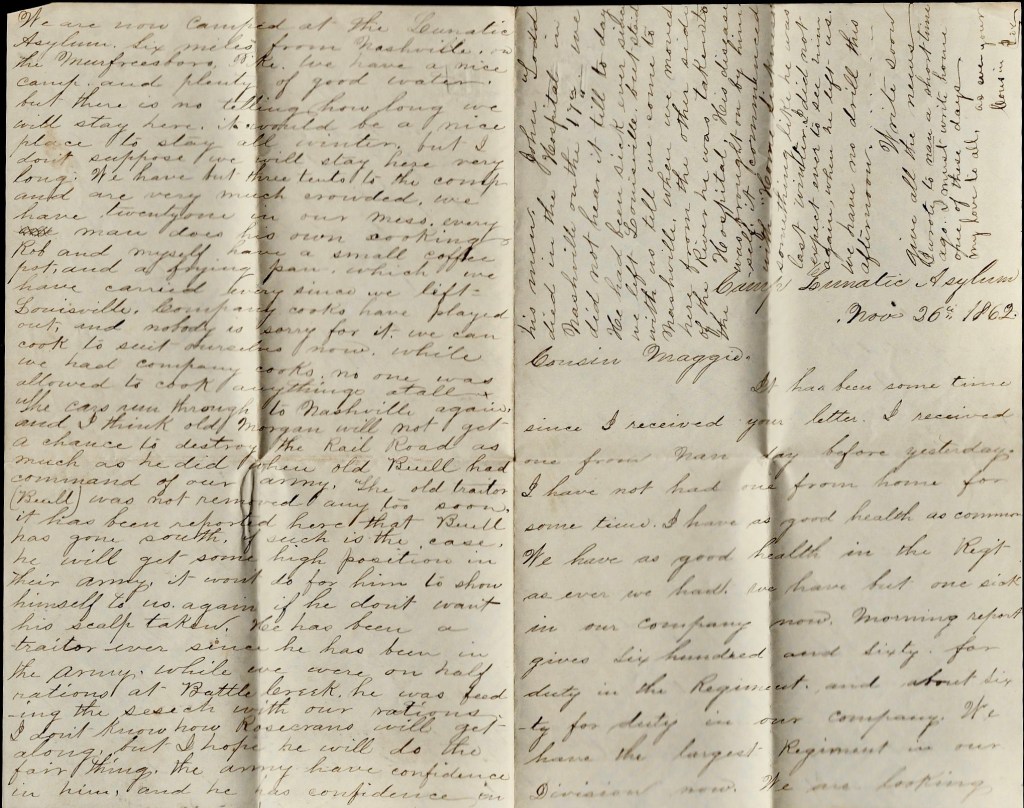 Camp Lunatic Asylum
Nov 26th 1862.
Cousin Maggie.
It has been some time
since I received your letter. I received
one from Nan day before yesterday.
I have not had one from home for
some time. I have as good health as common
We have as good health in the Regt
as ever we had. we have but one sick
in our company now. Morning report
gives six hundred and sixty for
duty in the Regiment. and about six
-ty for duty in our company. We
have the largest Regiment in our
Division now. We are looking
We are now camped at the Lunatic
Asylum. Six miles from Nashville. on
the Murfreesboro Pike. we have a nice
camp and plenty of good water
but there is no telling how long we
will stay here. it would be a nice
place to stay all winter. but I
dont suppose we will stay here very
long. We have but three tents to the comp
and are very much crowded. we
have twentyone in our mess. every
man does his own cooking
Rob and myself have a small coffee
pot, and a frying pan. which we
have carried every since we left
Louisville. Company cooks have played
out, and nobody is sorry for it. we can
cook to suit ourselves now. while
we had company cooks. no one was
allowed to cook anythinge atall
The cars run through to Nashville again.
and I think old Morgan will not get
a chance to destroy the Rail Road as
much as he did when old Buell had
command of our army. The old traitor
(Buell) was not removed any too soon.
it has been reported here that Buell
has gone south. if such is the case.
he will get some high position in
their army. it wont do for him to show
himself to us. again if he dont want
his scalp taken. He has been a
traitor ever since he has been in
the army. while we were on half
rations at Battle Creek. he was feed
-ing the sesech with our rations,
I dont know how Rosecrans will get
along. but I hope he will do the
fair thing. the army have confidence
in him, and he has confidence in
his men. John
died in the Hospital in
Nashville on the 17th we
did not hear it till to day
He had been sick ever since
we left Louisville but staid
with us till we come to
Nashville. when we moved
here from the other side
of the River he was taken to
the Hospital. His disease
was brought on by him
self. it commenced
something like he was
last winter. I did not
expect ever to see him
again when he left us.
we have no drill this
afternoon. Write soon
give all the news.
I wrote to nan a short time
ago. I must write home
one of these days
my love to all. as ever your
Cousin